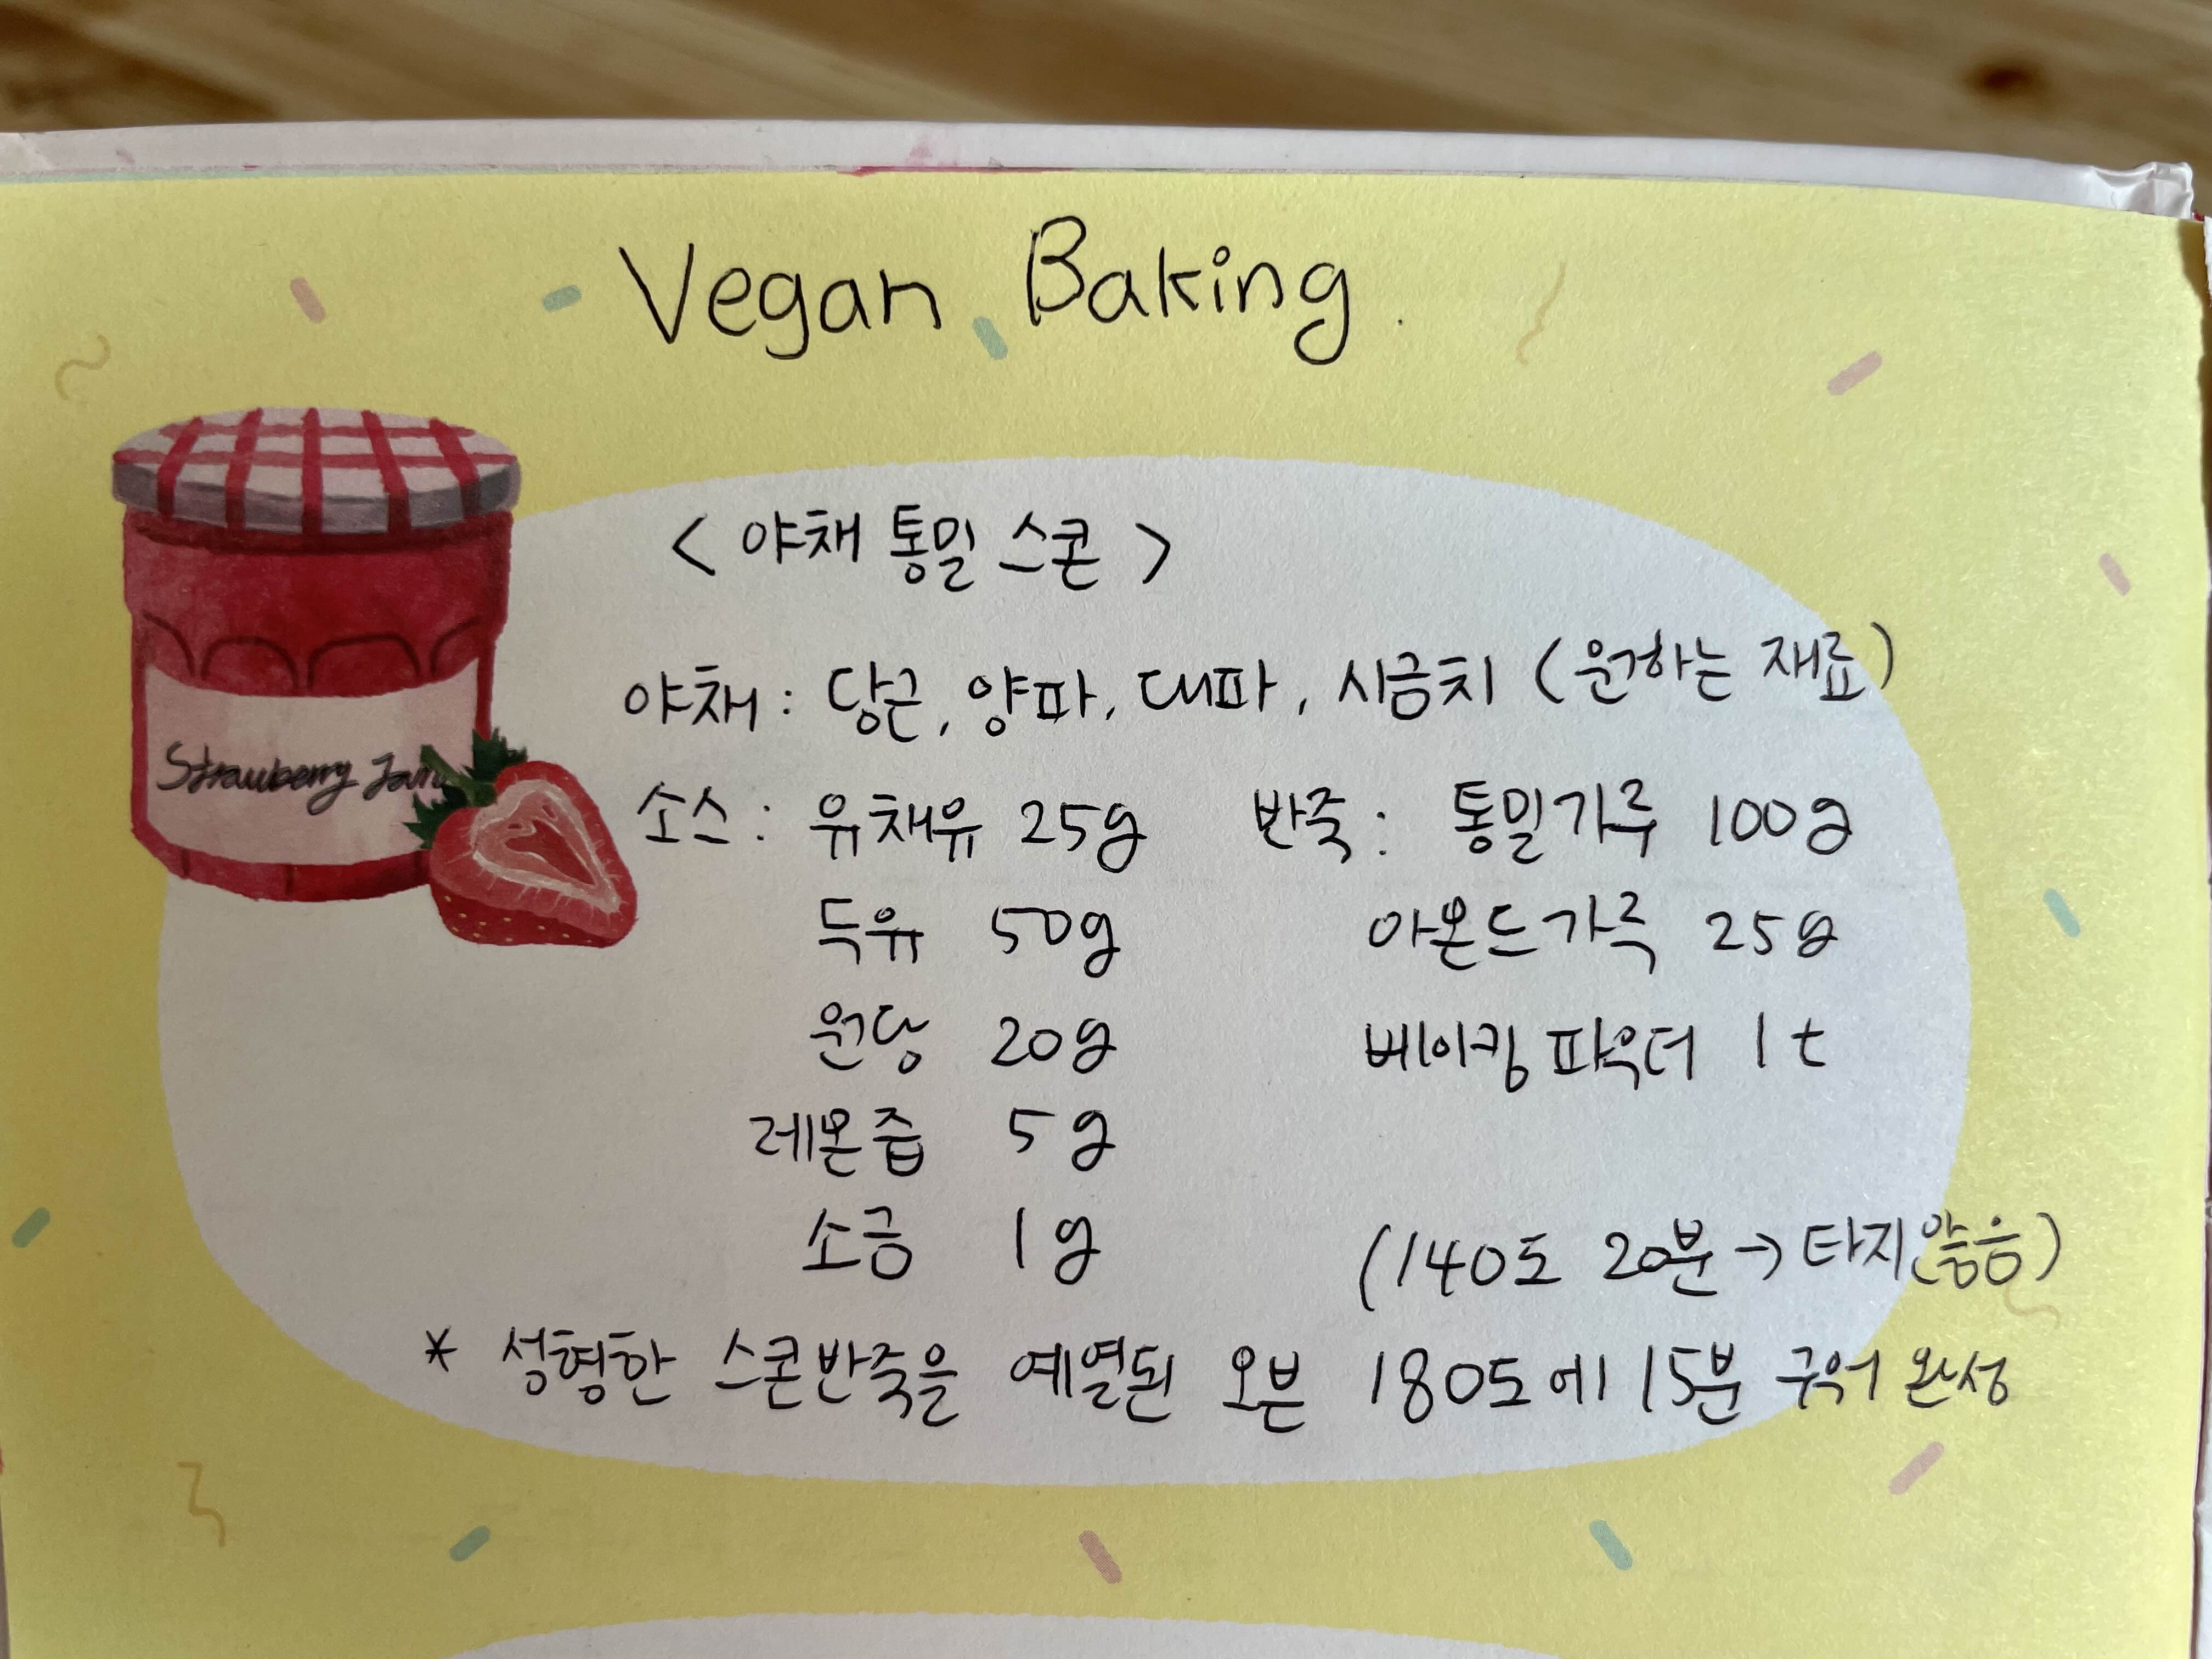 Vegan Baking.
< 야채 통밀 스콘 >
야채 : 당근, 양파, 대파, 시금치 (원하는 재료)
소스 : 유채유 25g 반죽 : 통밀가루 100g
두유 50g 아몬드가루 25g
원당 20g 베이킹파우더 1t
레몬즙 5g
소금 1g (140도 20분 → 타지않음음)
* 성형한 스콘반죽을 예열된 오븐 180도에 15분 구워 완성
Strawberry Jam